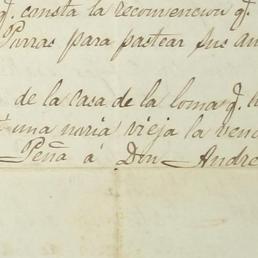 q. consta la reconvencion q.
Porras para pastear sus an
de la casa de la loma q. h
una noria vieja la vend
Peña á Don Andre